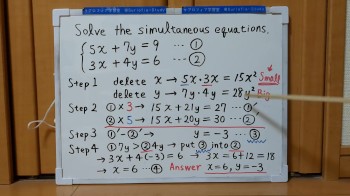 Solve the simultaneous equations.
5x + 7y = 9 … ①
3x + 4y = 6 … ②
Step 1 delete x → 5x・3x = 15x² Small
delete y → 7y・4y = 28y² Big
Step 2 ① × 3 → 15x + 21y = 27 … ①′
② × 5 → 15x + 20y = 30 … ②′
Step 3 ①′ - ②′ → y = -3 … ③
Step 4 ① 7y > ② 4y → put ③ into ②
→ 3x + 4(-3) = 6 → 3x = 6 + 12 = 18
→ x = 6 … ④ Answer x = 6, y = -3